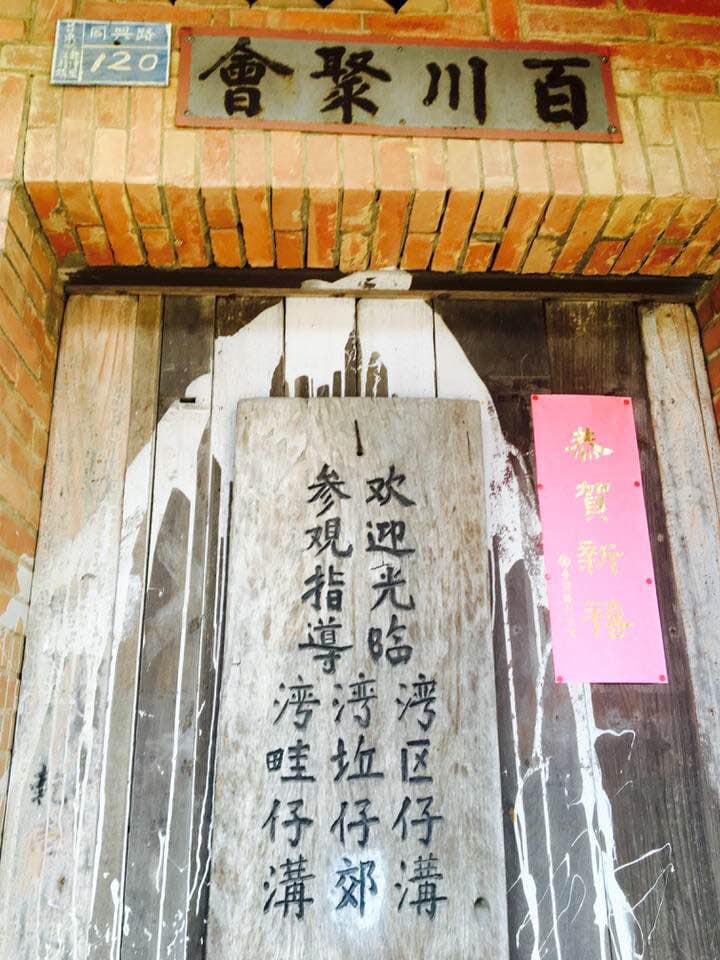 同興路
120
百川聚會
欢迎光臨
参观指導
湾区仔溝
湾坵仔郊
湾畦仔溝
恭賀新禧